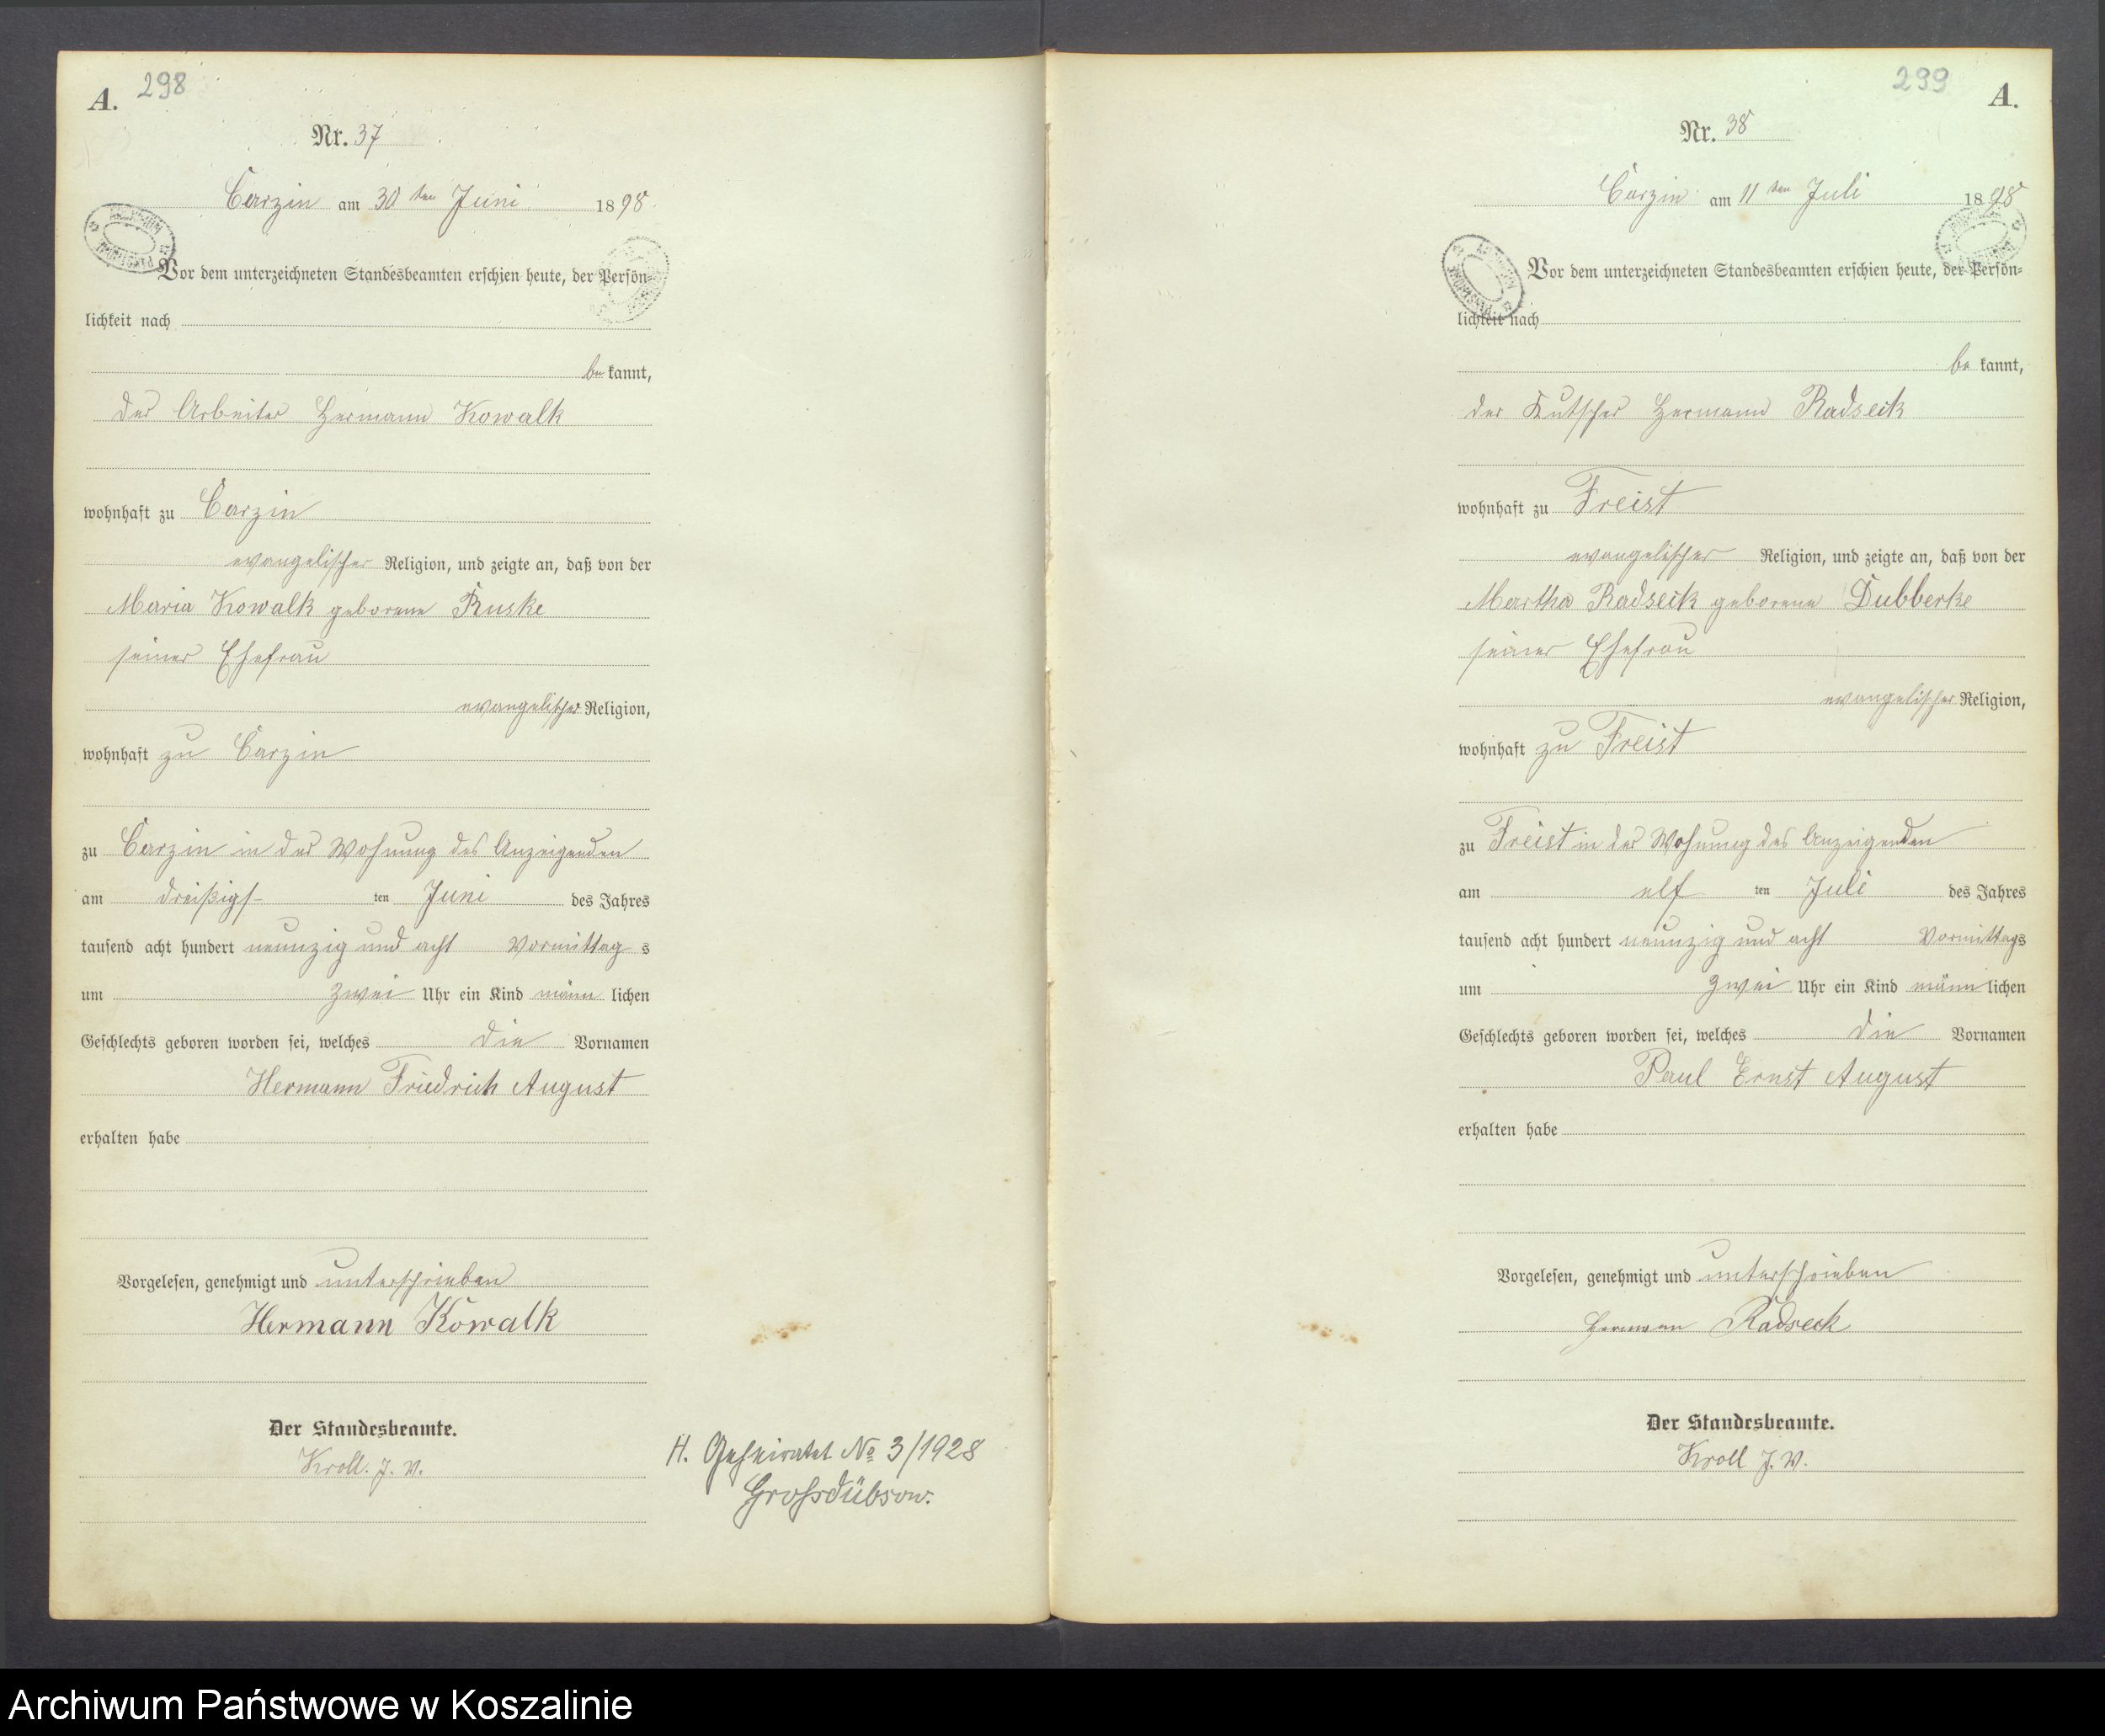 A. 298
Nr. 37
Carzin am 30 ten Juni 1898
Vor dem unterzeichneten Standesbeamten erschien heute, der Persön=
lichkeit nach
be kannt,
der Arbeiter Hermann Kowalk
wohnhaft zu Carzin
evangelischer Religion, und zeigte an, daß von der
Maria Kowalk geborene Ruske
seiner Ehefrau
evangelischer Religion,
wohnhaft zu Carzin
zu Carzin in der Wohnung des Anzeigenden
am dreißigs- ten Juni des Jahres
tausend acht hundert neunzig und acht Vormittag s
um zwei Uhr ein Kind männ lichen
Geschlechts geboren worden sei, welches die Vornamen
Hermann Friedrich August
erhalten habe
Vorgelesen, genehmigt und unterschrieben
Hermann Kowalk
Der Standesbeamte.
Kroll. J. V.
H. Geheiratet No 3/1928
Grossdübsow.
299 A.
Nr. 38
Carzin am 11 ten Juli 1898
Vor dem unterzeichneten Standesbeamten erschien heute, der Persön=
lichkeit nach
be kannt,
der Kutscher Hermann Radseck
wohnhaft zu Freist
evangelischer Religion, und zeigte an, daß von der
Martha Radseck geborene Dubberke
seiner Ehefrau
evangelischer Religion,
wohnhaft zu Freist
zu Freist in der Wohnung des Anzeigenden
am elf ten Juli des Jahres
tausend acht hundert neunzig und acht Vormittags
um zwei Uhr ein Kind männ lichen
Geschlechts geboren worden sei, welches die Vornamen
Paul Ernst August
erhalten habe
Vorgelesen, genehmigt und unterschrieben
Hermann Radseck
Der Standesbeamte.
Kroll J. V.
Archiwum Państwowe w Koszalinie